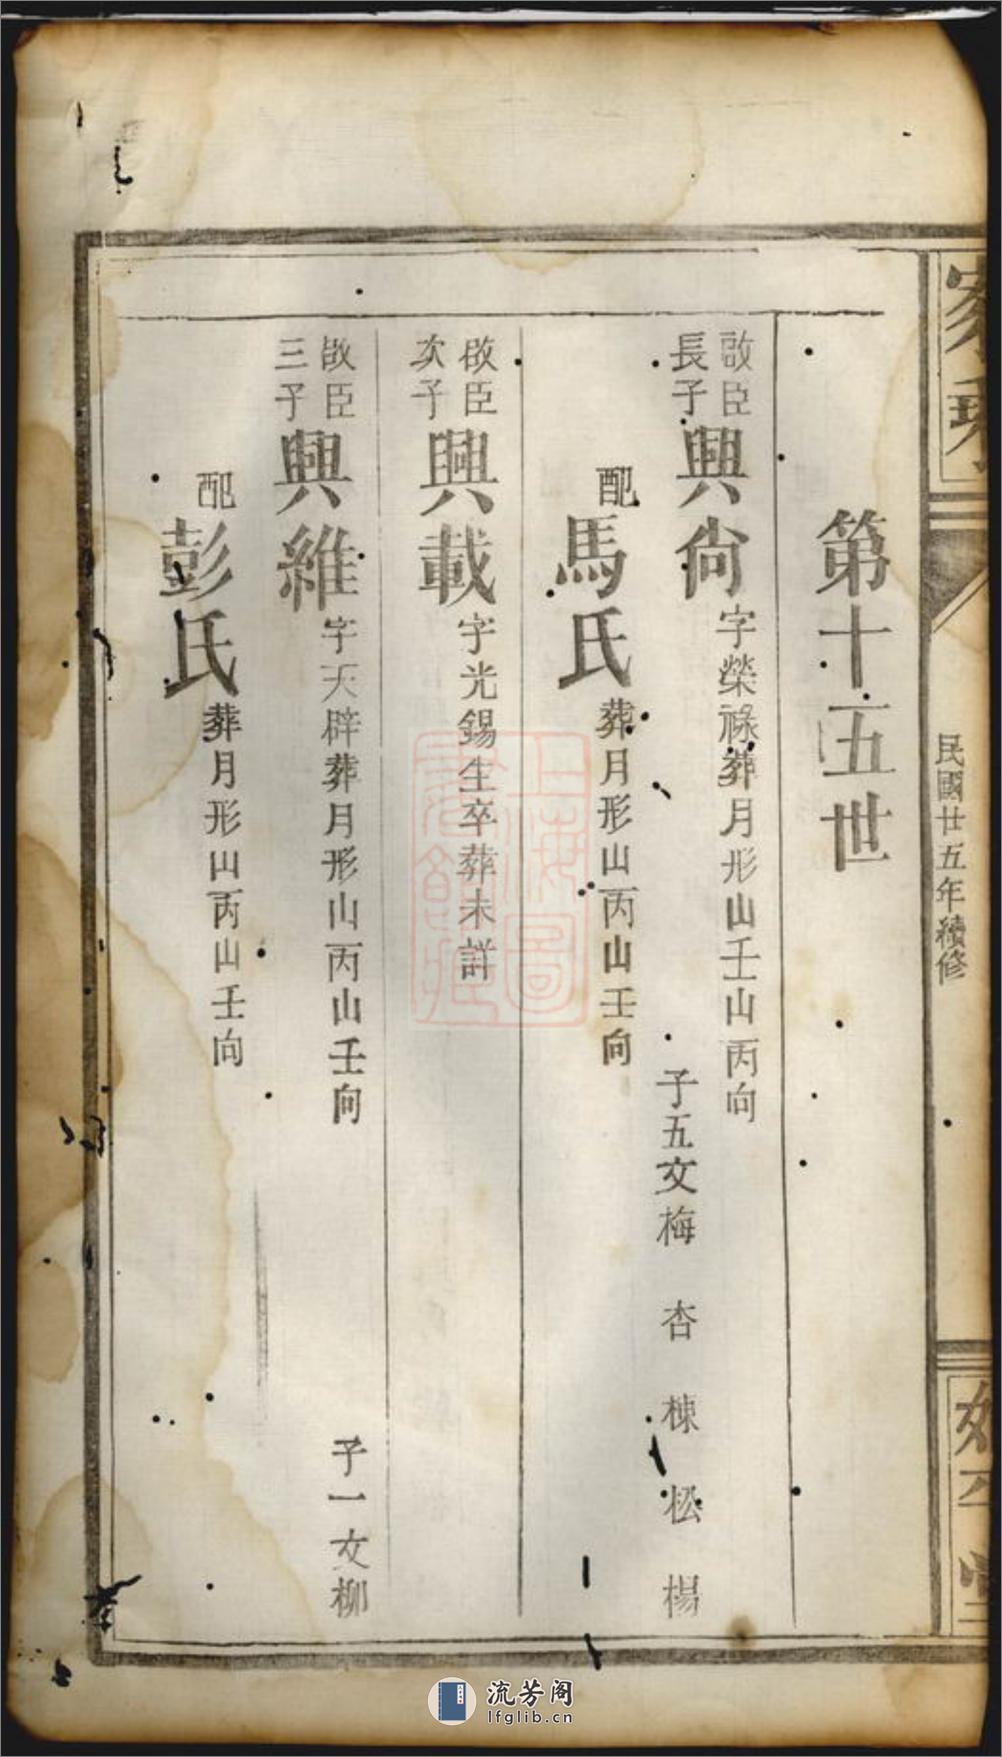 家乘
民國廿五年續修
第十五世
啟臣長子
興尚
字榮祿葬月形山壬山丙向
子五文梅 杏 棟 松 楊
配馬氏
葬月形山丙山壬向
啟臣次子
興載
字光錫生卒葬未詳
啟臣三子
興維
字天辟葬月形山丙山壬向
子一文柳
配彭氏
葬月形山丙山壬向
上海圖書館藏
流芳阁
lfglib.cn